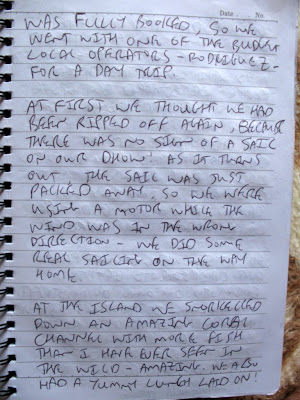 Date No.
WAS FULLY BOOKED, SO WE
WENT WITH ONE OF THE BUDGET
LOCAL OPERATORS - RODRIGUEZ -
FOR A DAY TRIP.
AT FIRST WE THOUGHT WE HAD
BEEN RIPPED OFF AGAIN, BECAUSE
THERE WAS NO SIGN OF A SAIL
ON OUR DHOW! AS IT TURNS
OUT, THE SAIL WAS JUST
PACKED AWAY, SO WE WERE
USING A MOTOR WHILE THE
WIND WAS IN THE WRONG
DIRECTION - WE DID SOME
REAL SAILING ON THE WAY
HOME.
AT THE ISLAND WE SNORKELLED
DOWN AN AMAZING CORAL
CHANNEL WITH MORE FISH
THAN I HAVE EVER SEEN IN
THE WILD - AMAZING. WE ALSO
HAD A YUMMY LUNCH LAID ON!